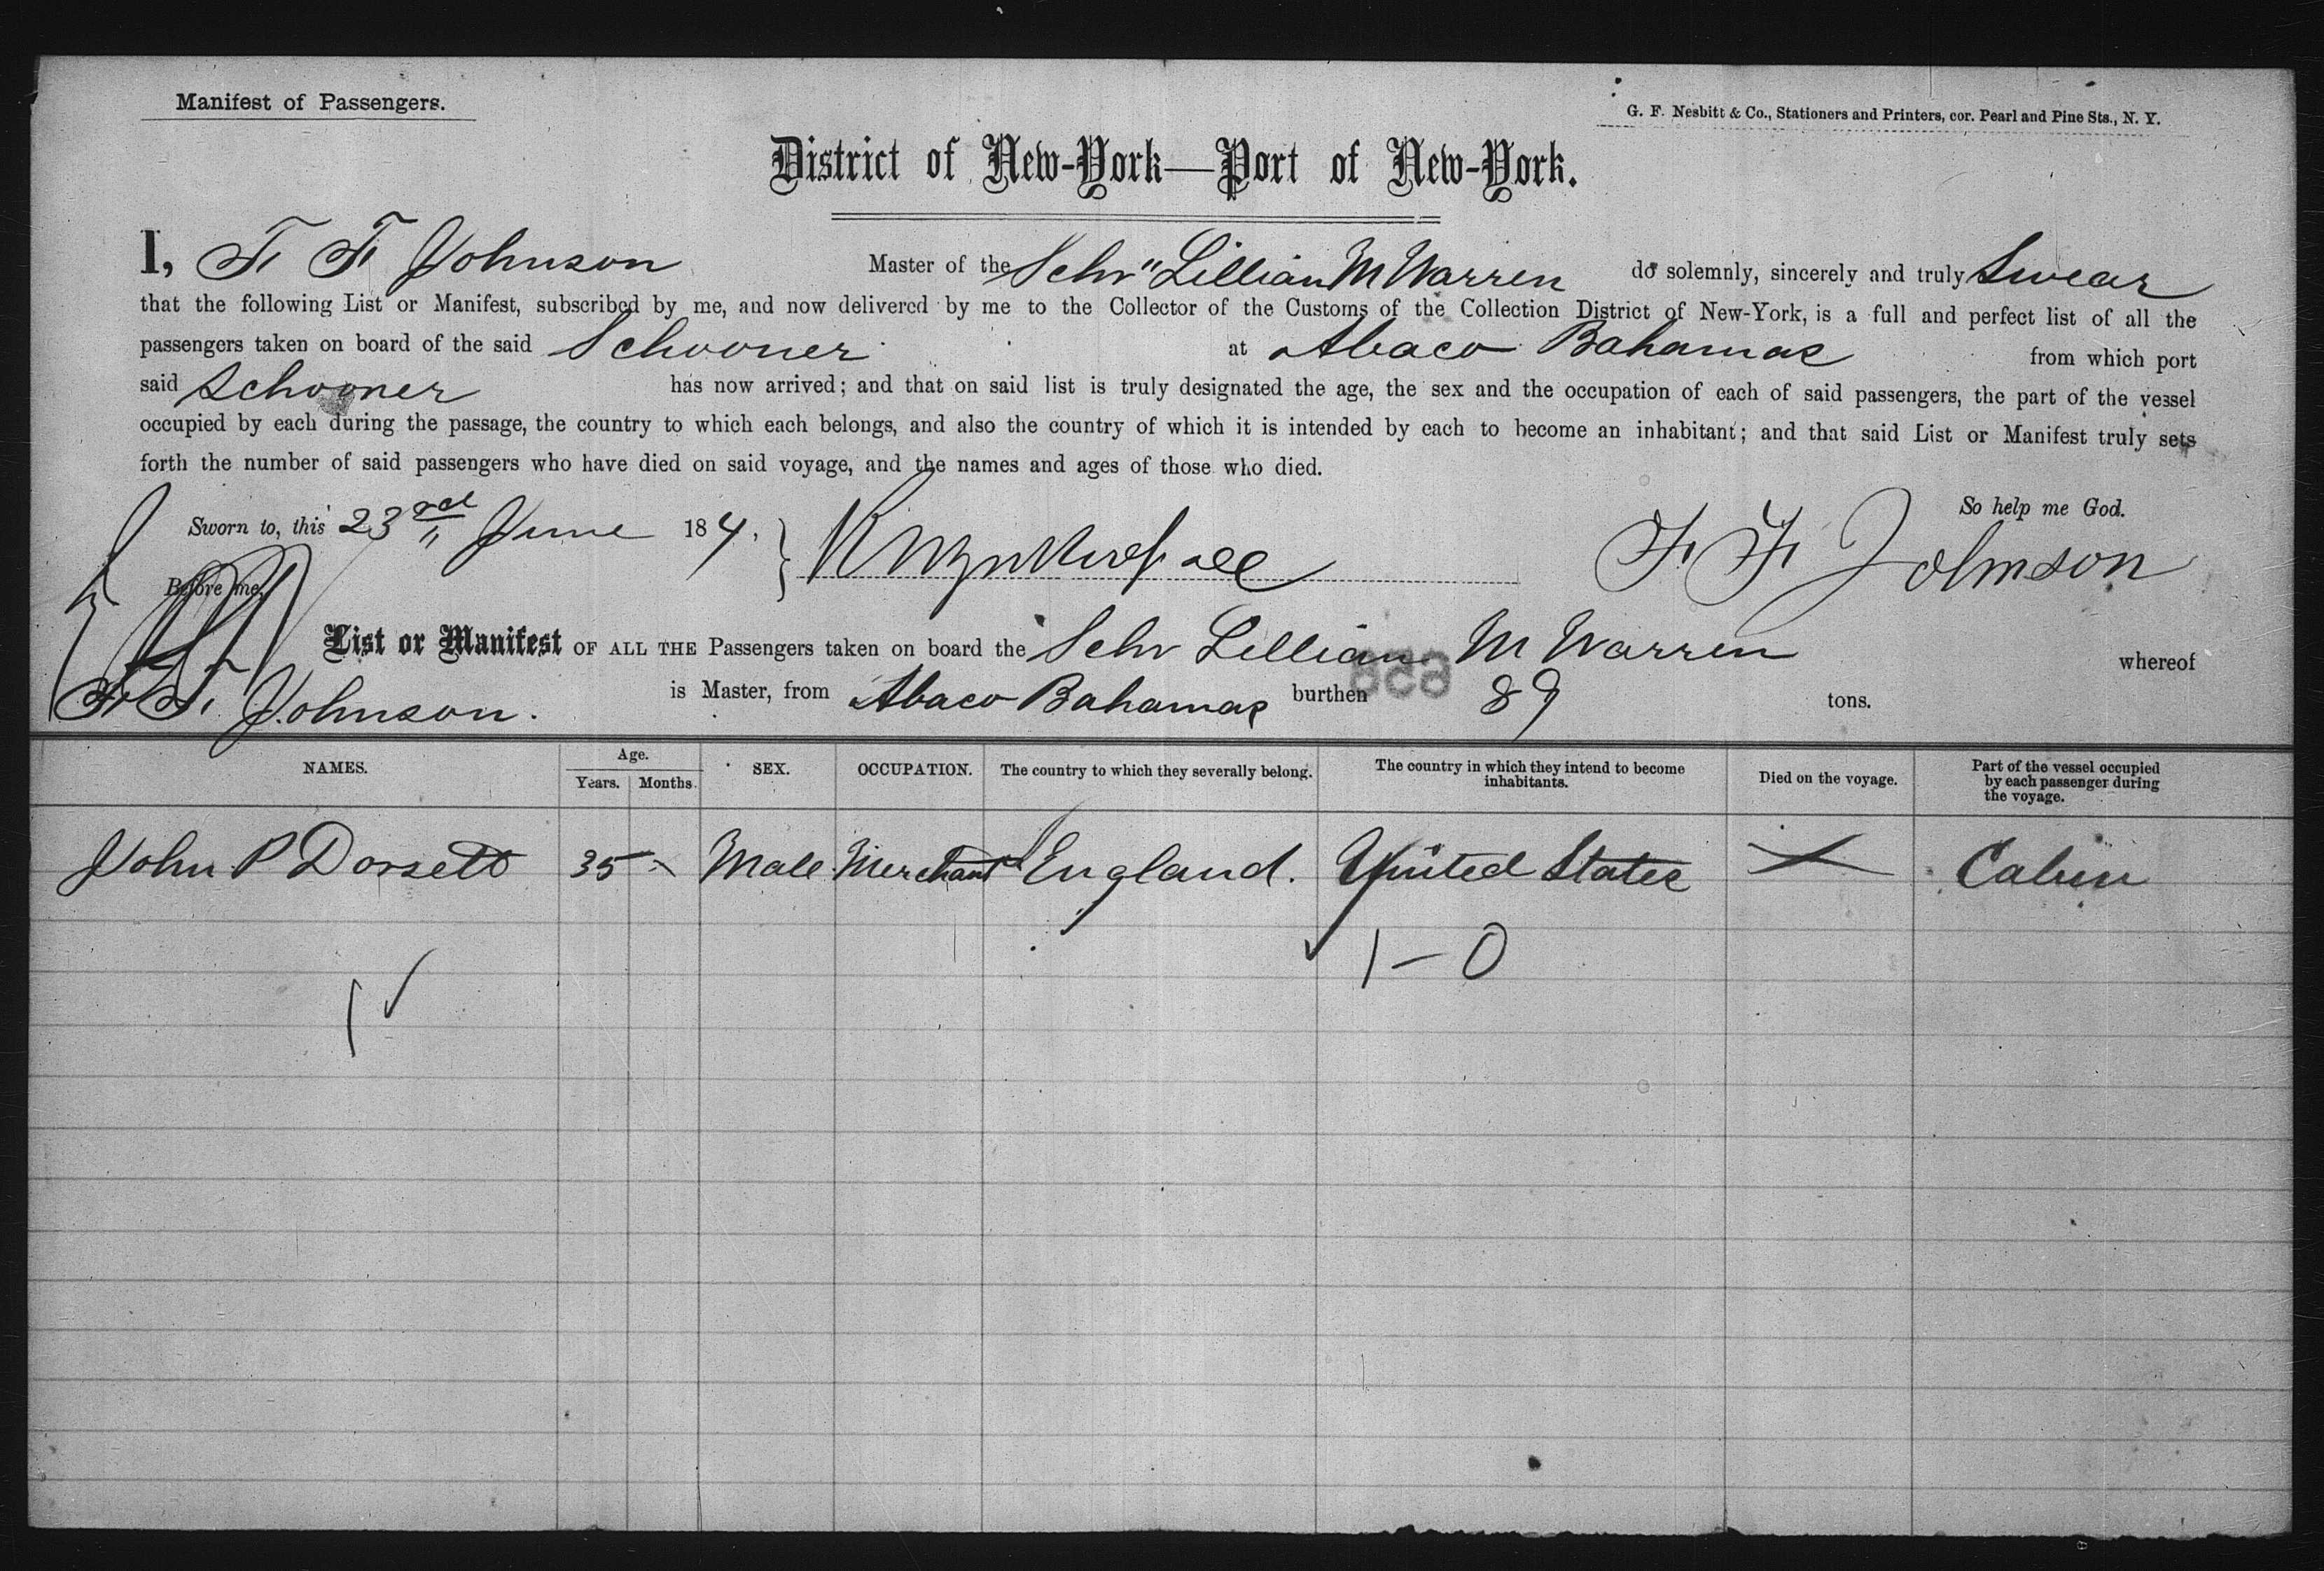 Manifest of Passengers.
G. F. Nesbitt & Co., Stationers and Printers, cor. Pearl and Pine Sts., N. Y.
District of New-York—Port of New-York.
I, F. F. Johnson Master of the Schr "Lillian M Warren do solemnly, sincerely and truly Swear
that the following List or Manifest, subscribed by me, and now delivered by me to the Collector of the Customs of the Collection District of New-York, is a full and perfect list of all the
passengers taken on board of the said Schooner at Abaco Bahamas from which port
said Schooner has now arrived; and that on said list is truly designated the age, the sex and the occupation of each of said passengers, the part of the vessel
occupied by each during the passage, the country to which each belongs, and also the country of which it is intended by each to become an inhabitant; and that said List or Manifest truly sets
forth the number of said passengers who have died on said voyage, and the names and ages of those who died.
So help me God.
Sworn to, this 23rd June 184. F. F. Johnson
Before me,
List or Manifest OF ALL THE Passengers taken on board the Schr Lillian M Warren whereof
F. F. Johnson. is Master, from Abaco Bahamas burthen 89 tons.
NAMES. Age. Years. Months. SEX. OCCUPATION. The country to which they severally belong. The country in which they intend to become inhabitants. Died on the voyage. Part of the vessel occupied by each passenger during the voyage.
John P Dorsett 35 - Male Merchant England. United States Cabin
1 - 0
1 ✓